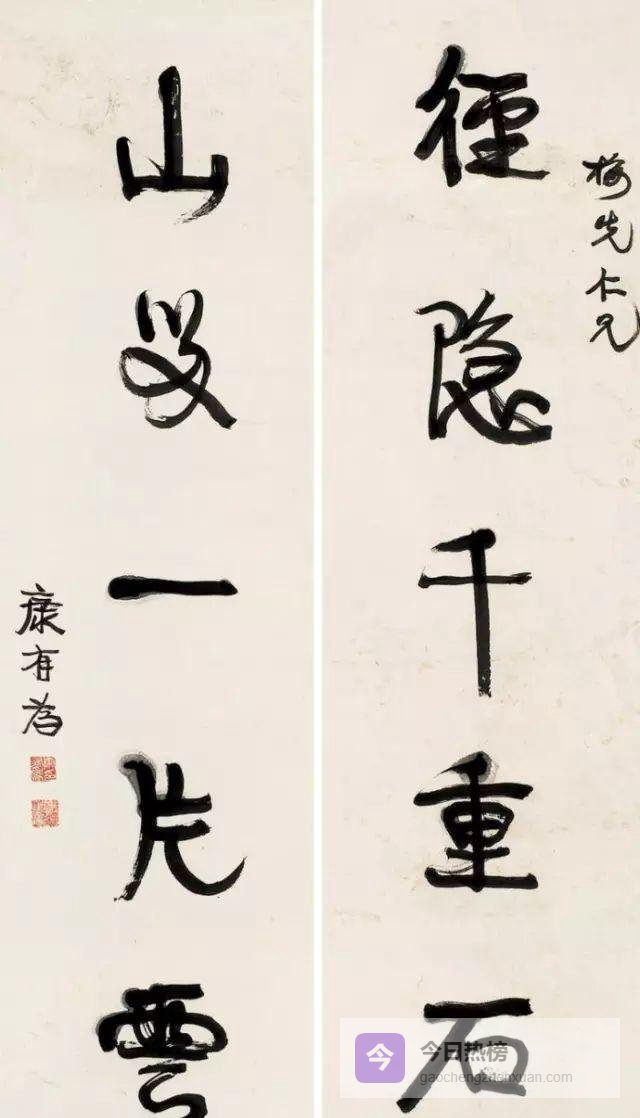 梅先仁兄
徑隐千重石
山一片雲
康有為
今 今日热榜
gaochengzhishixuan.com